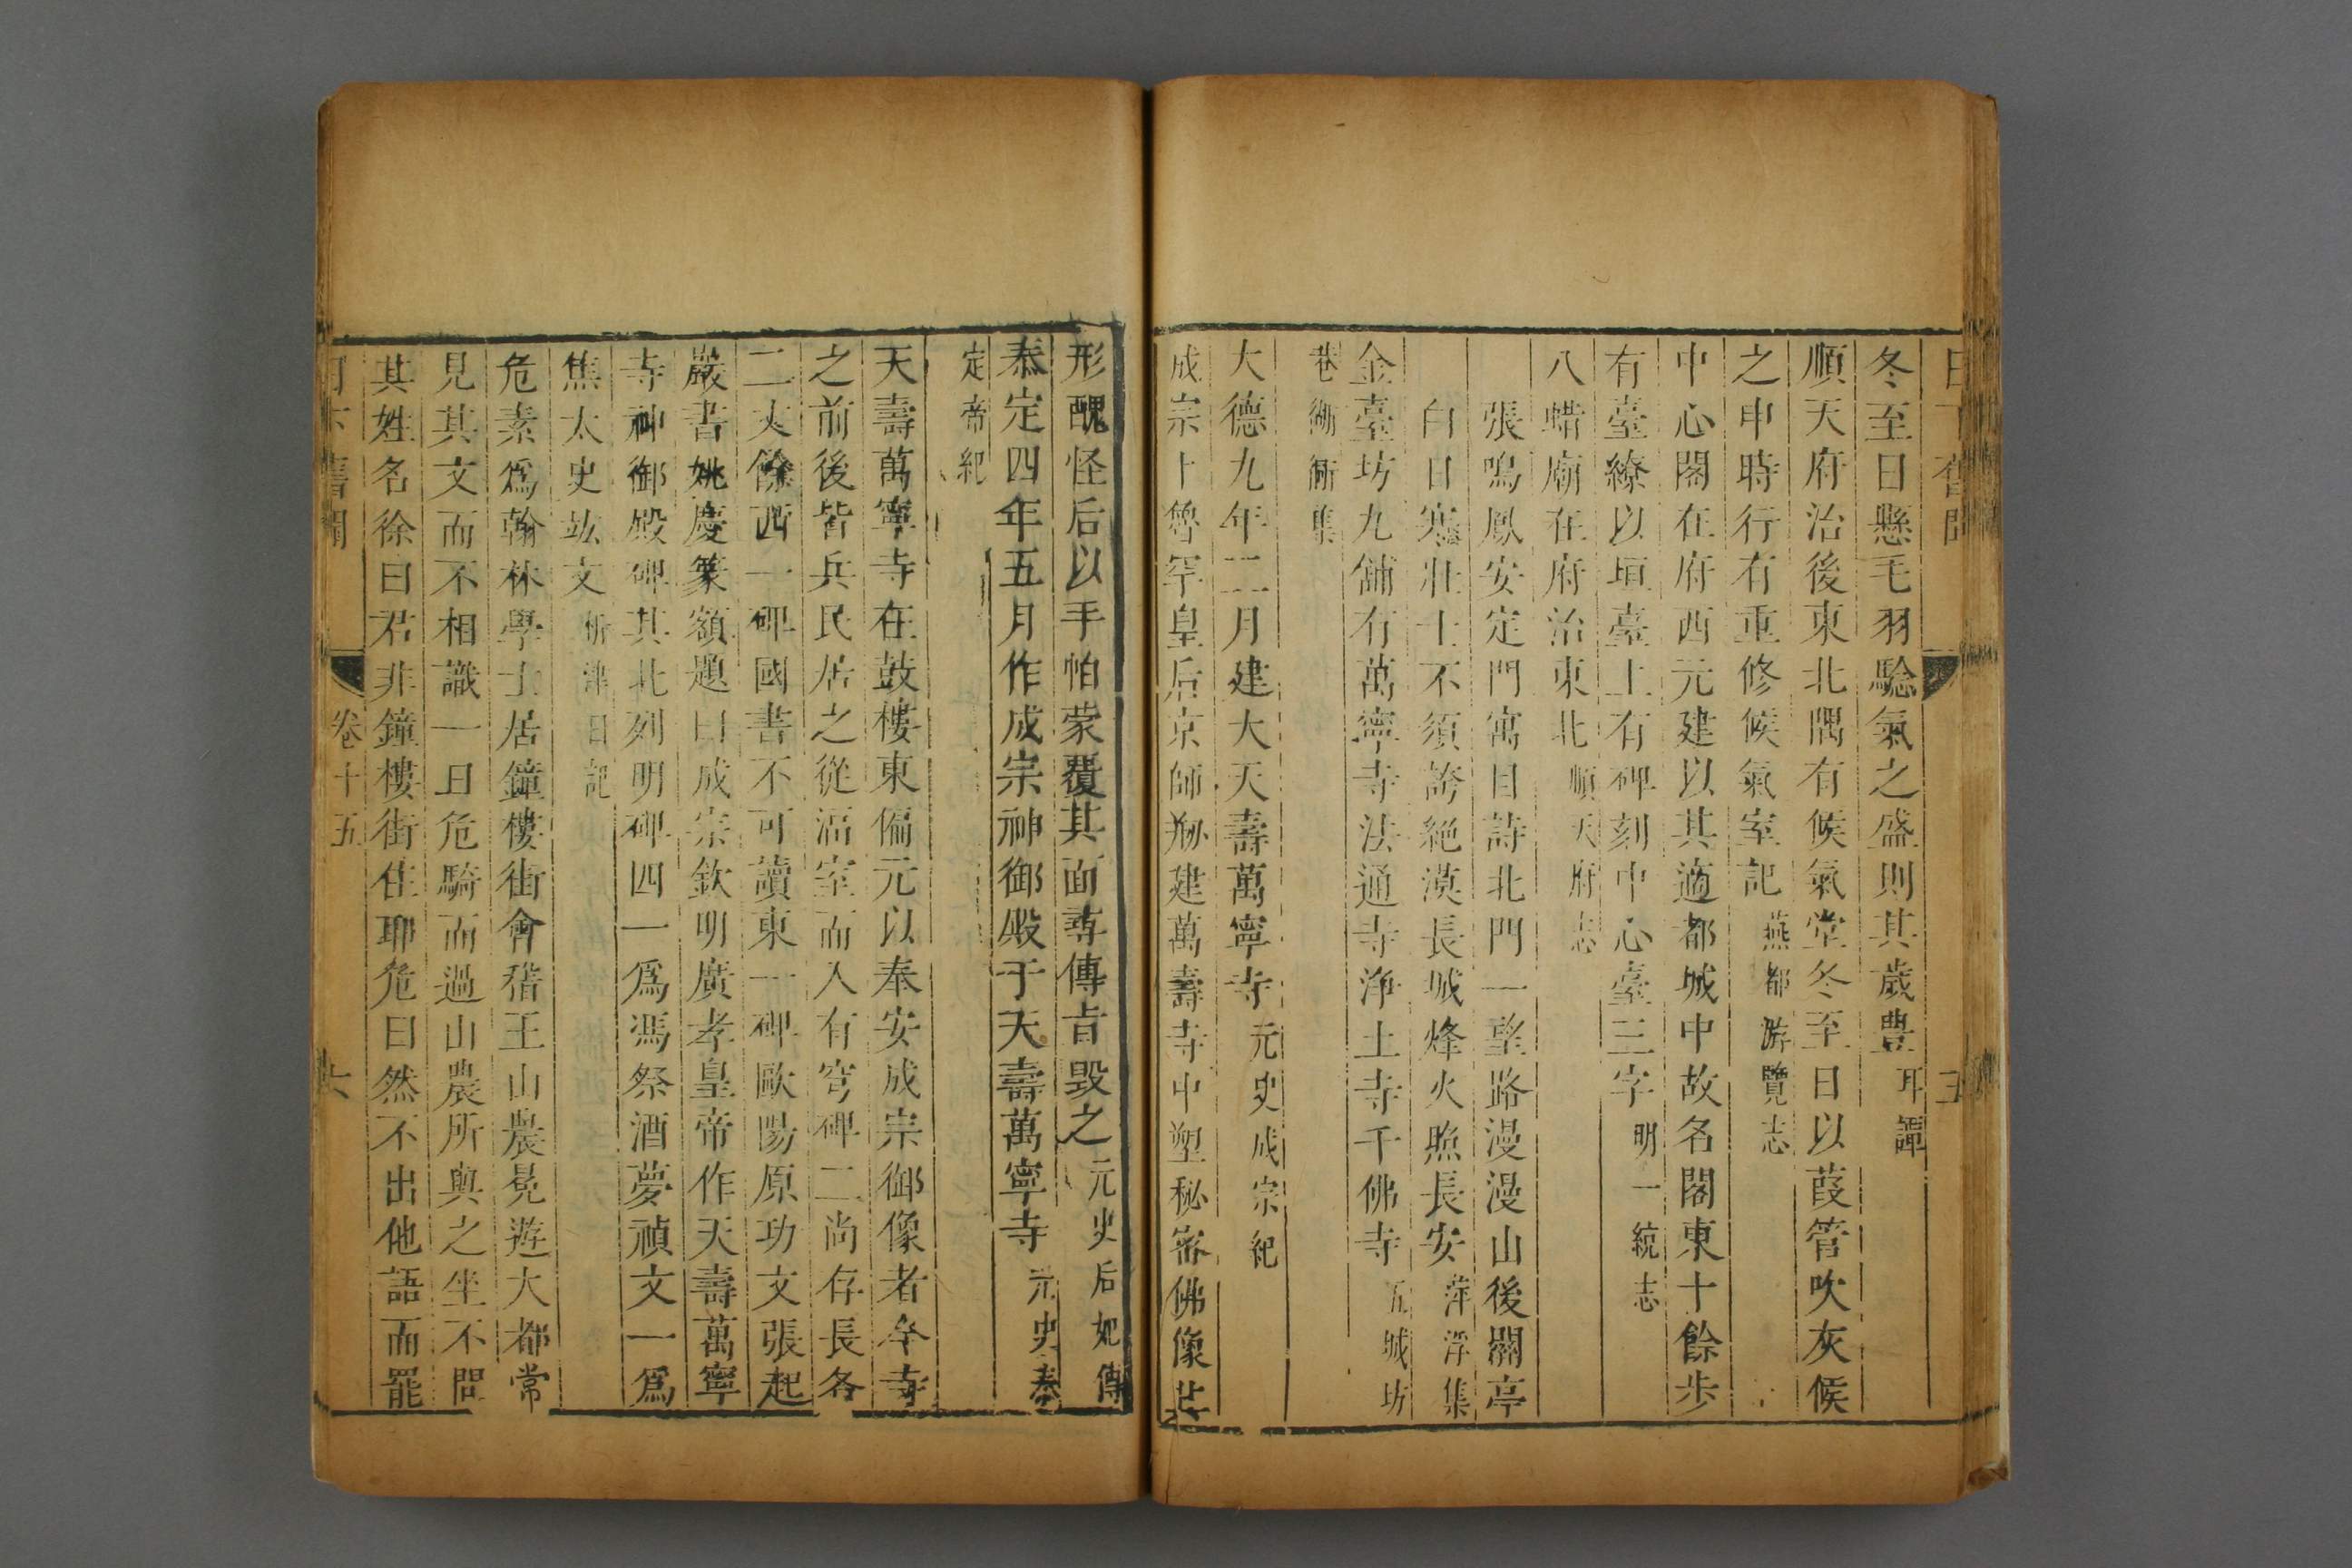 日下舊聞 五
冬至日懸毛羽騐氣之盛則其歲豊耳譚
順天府治後東北隅有候氣堂冬至日以葭管吹灰候
之申時行有重修候氣室記燕都游覽志
中心閣在府西元建以其適都城中故名閣東十餘步
有臺繚以垣臺上有碑刻中心臺三字明一統志
八蜡廟在府治東北順天府志
張鳴鳳安定門寓目詩北門一望路漫漫山後關亭
白日寒壯士不須誇絶漠長城烽火照長安萍浮集
金臺坊九舖有萬寧寺法通寺淨土寺千佛寺五城坊
巷衚衕集
大德九年二月建大天壽萬寧寺元史成宗紀
成宗卜魯罕皇后京師刱建萬壽寺中塑秘密佛像其
形醜怪后以手帕蒙覆其面尋傳旨毀之元史后妃傳
泰定四年五月作成宗神御殿于天壽萬寧寺元史泰
定帝紀
天壽萬寧寺在鼓樓東偏元以奉安成宗御像者今寺
之前後皆兵民居之從湢室而入有穹碑二尚存長各
二丈餘西一碑國書不可讀東一碑歐陽原功文張起
巖書姚慶篆額題曰成宗欽明廣孝皇帝作天壽萬寧
寺神御殿碑其北列明碑四一爲馮祭酒夢禎文一爲
焦太史竑文析津日記
危素爲翰林學士居鐘樓街會稽王山農冕遊大都常
見其文而不相識一日危騎而過山農所與之坐不問
其姓名徐曰君非鐘樓街住耶危曰然不出他語而罷
日下舊聞 卷十五 六